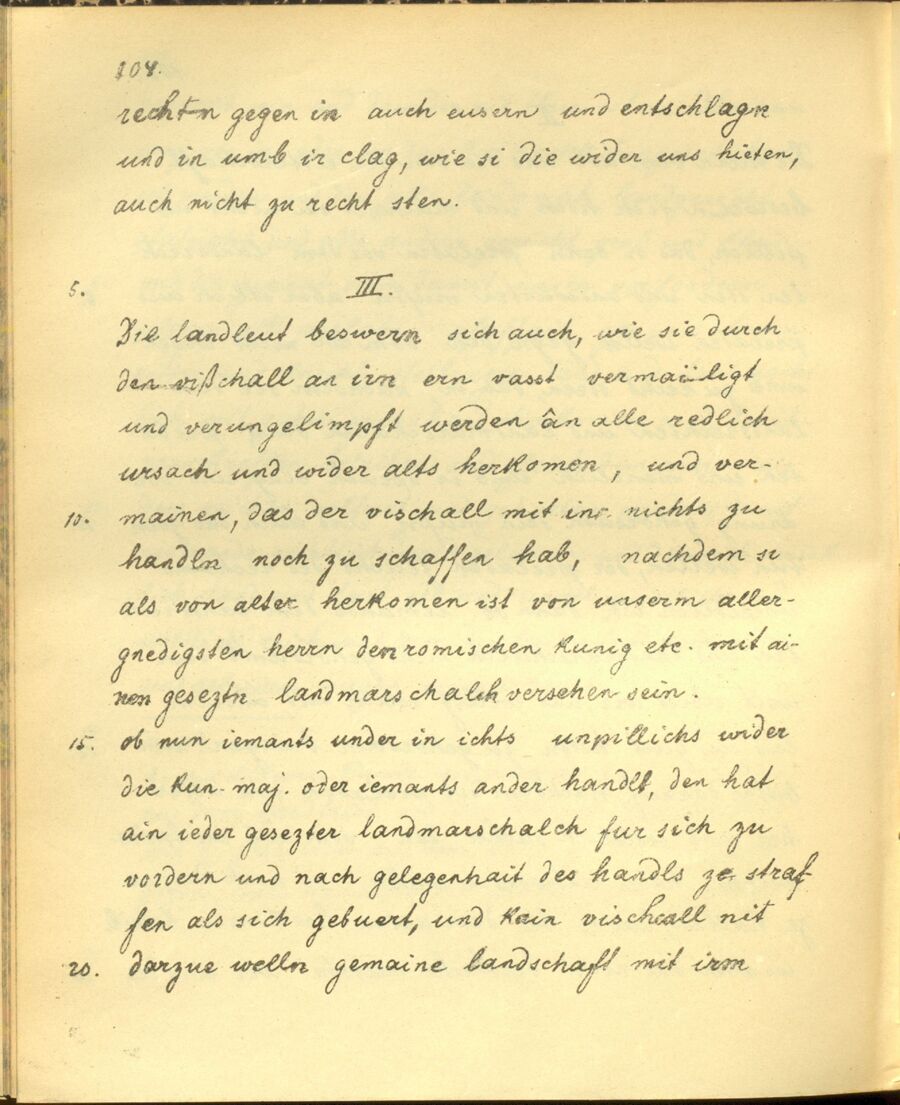 104.
rechtn gegen in auch eusern und entschlagn
und in umb ir clag, wie si die wider uns hieten,
auch nicht zu recht sten.
5. III.
Die landleut beswern sich auch, wie sie durch
den vißchall an irn ern vasst vermaüligt
und verungelimpft werden ân alle redlich
ursach und wider alts herkomen, und ver-
10. mainen, das der vischall mit inr nichts zu
handln noch zu schaffen hab, nachdem si
als von alter herkomen ist von unserm aller-
gnedigsten herrn den romischen kunig etc. mit ai-
nen geseztn landmarschalch versehen sein.
15. ob nun iemants under in ichts unpillichs wider
die kun. maj. oder iemants ander handlt, den hat
ain ieder gesezter landmarschalch fur sich zu
vordern und nach gelegenhait des handls ze straf-
fen als sich gebuert, und kain vischcall nit
20. darzue welln gemaine landschaft mit irm